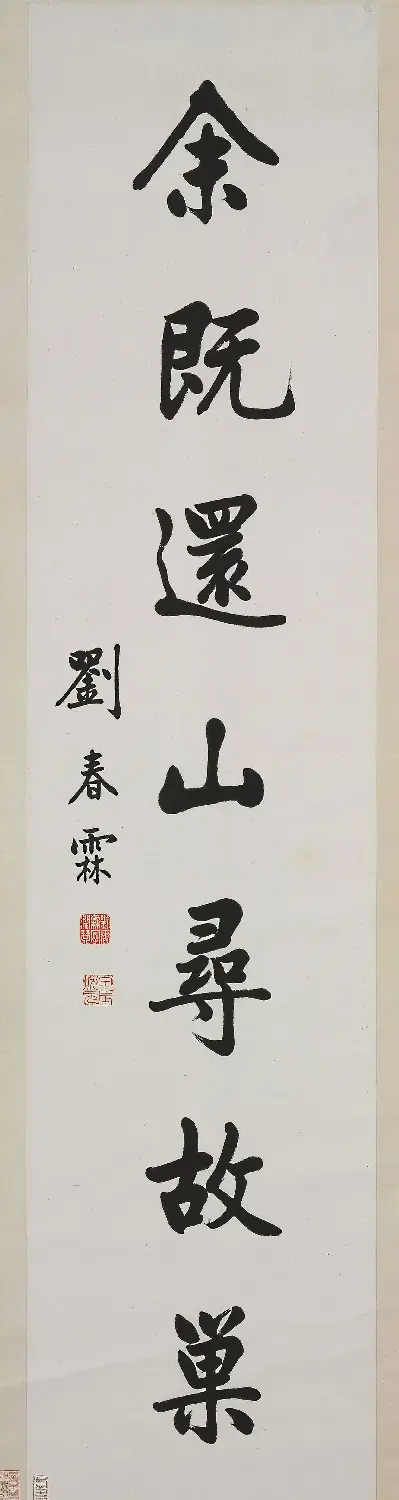 余既還山尋故巢
劉春霖